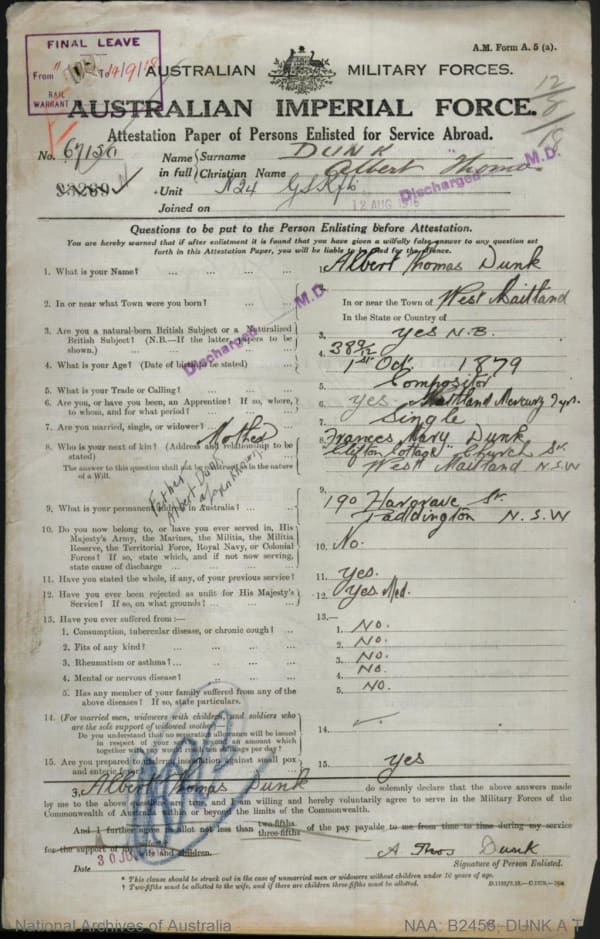 FINAL LEAVE
From To 14/9/18
RAIL
WARRANT
A.M. Form A. 5 (a).
AUSTRALIAN MILITARY FORCES.
12/8/18
AUSTRALIAN IMPERIAL FORCE.
Attestation Paper of Persons Enlisted for Service Abroad.
No. Name Surname DUNK
in full Christian Name Albert Thomas
Unit N24
Joined on 12 AUG 1918
Discharged M.D.
Questions to be put to the Person Enlisting before Attestation.
You are hereby warned that if after enlistment it is found that you have given a wilfully false answer to any question set
forth in this Attestation Paper, you will be liable to be for the offence.
1. What is your Name? ... ... ... 1. Albert Thomas Dunk
2. In or near what Town were you born? ... In or near the Town of West Maitland
In the State or Country of
3. Are you a natural-born British Subject or a Naturalized
British Subject? (N.B.—If the latter, papers to be
shown.) 3. Yes N.B.
Discharged M.D.
4. What is your Age? (Date of birth to be stated) 4. 38 9/12
1st Oct 1879
5. What is your Trade or Calling? ... 5. Compositor
6. Are you, or have you been, an Apprentice? If so, where,
to whom, and for what period? 6. Yes Maitland Mercury 7yrs.
7. Are you married, single, or widower? 7. Single
8. Who is your next of kin? (Address and relationship to be
stated) Mother 8. Frances Mary Dunk
"Clifton Cottage" Church St.
West Maitland N.S.W
The answer to this question shall not be in the nature
of a Will.
Father
Albert Dunk
9. What is your permanent in Australia? ... 9. 190 Hargrave St.
Paddington N.S.W
10. Do you now belong to, or have you ever served in, His
Majesty's Army, the Marines, the Militia, the Militia
Reserve, the Territorial Force, Royal Navy, or Colonial
Forces? If so, state which, and if not now serving,
state cause of discharge 10. No.
11. Have you stated the whole, if any, of your previous service? 11. Yes.
12. Have you ever been rejected as unfit for His Majesty's
Service? If so, on what grounds? 12. Yes Med.
13. Have you ever suffered from :— 13.—
1. Consumption, tubercular disease, or chronic cough? 1. No.
2. Fits of any kind? 2. No.
3. Rheumatism or asthma? 3. No.
4. Mental or nervous disease? 4. No.
5. Has any member of your family suffered from any of the
above diseases? If so, state particulars. 5. No.
14. (For married men, widowers with children, and soldiers who
are the sole support of widowed mother)
Do you understand that no separation allowance will be issued
in respect of your an amount which
together with would reach ten shillings per day? 14.
15. Are you prepared to undergo inoculation against small pox
and enteric fever? 15. Yes
I, Albert Thomas Dunk do solemnly declare that the above answers made
by me to the above are true, and I am willing and hereby voluntarily agree to serve in the Military Forces of the
Commonwealth of Australia within or beyond the limits of the Commonwealth.
And I further agree to allot not less than two-fifths
three-fifths of the pay payable to me from time to time during my service
for the support of my wife and children.
Date 30 A Thos Dunk
Signature of Person Enlisted.
* This clause should be struck out in the case of unmarried men or widowers without children under 16 years of age.
† Two-fifths must be allotted to the wife, and if there are children three-fifths must be allotted.
National Archives of Australia NAA: B2455, DUNK A T